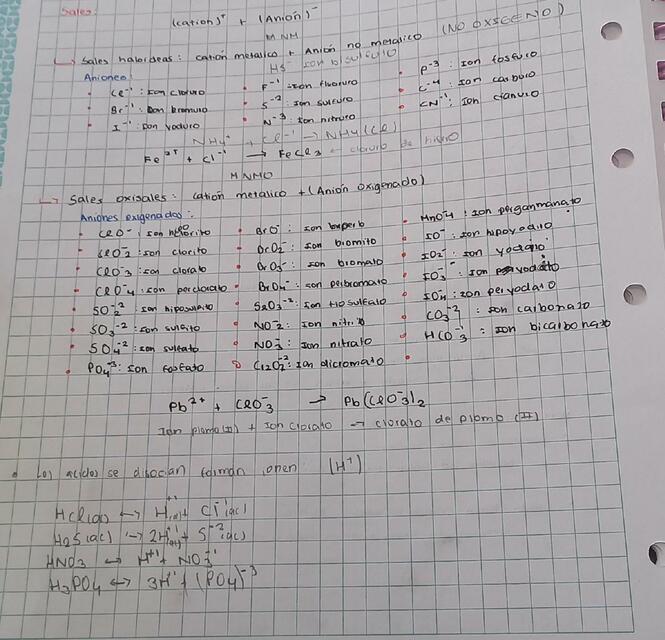 Sales:
(cation)⁺ + (Anión)⁻
MNM
Sales haloideas: catión metalico + Anión no metalico (NO OXIGENO)
HS⁻ Ion bisulfuro
Aniones
• Cl⁻¹: ion cloruro • F⁻¹: ion fluoruro • P⁻³: Ion fosfuro
• Br⁻¹: Ion bromuro • S⁻²: ion sulfuro • C⁻⁴: Ion carburo
• I⁻¹: ion yoduro • N⁻³: ion nitruro • CN⁻¹: Ion cianuro
NH₄⁺ + Cl⁻¹ → NH₄(Cl)
Fe³⁺ + Cl⁻¹ → FeCl₃ cloruro de
MNMO
Sales oxisales: catión metalico + (Anión oxigenado)
Aniones oxigenados:
• ClO⁻: ion • BrO⁻: ion • MnO⁻4: ion
• ClO⁻2: ion clorito • BrO2⁻: ion bromito • IO⁻: ion hipoyodito
• ClO⁻3: ion clorato • BrO3⁻: ion bromato • IO2⁻: ion
• ClO⁻4: ion perclorato • BrO4⁻: ion perbromato • IO3⁻: ion
• SO2⁻²: ion hiposulfito • S2O3⁻²: Ion tiosulfato • IO4⁻: ion peryodato
• SO3⁻²: ion sulfito • NO⁻2: Ion nitrito • CO3⁻²: ion carbonato
• SO4⁻²: ion sulfato • NO⁻3: Ion nitrato • HCO⁻3: Ion bicarbonato
• PO4⁻³: Ion fosfato • Cr2O7⁻²: Ion dicromato •
Pb²⁺ + ClO⁻3 → Pb(ClO⁻3)2
Ion plomo(II) + Ion clorato → clorato de plomo (II)
• Los acidos se disocian forman ionen (H⁺)
HCl(ac) ↔ H⁺¹(ac) + Cl⁻¹(ac)
H2S(ac) ↔ 2H⁺¹(ac) + S⁻²(ac)
HNO3 ↔ H⁺¹ + NO3⁻¹
H3PO4 ↔ 3H⁺ + (PO4)⁻³